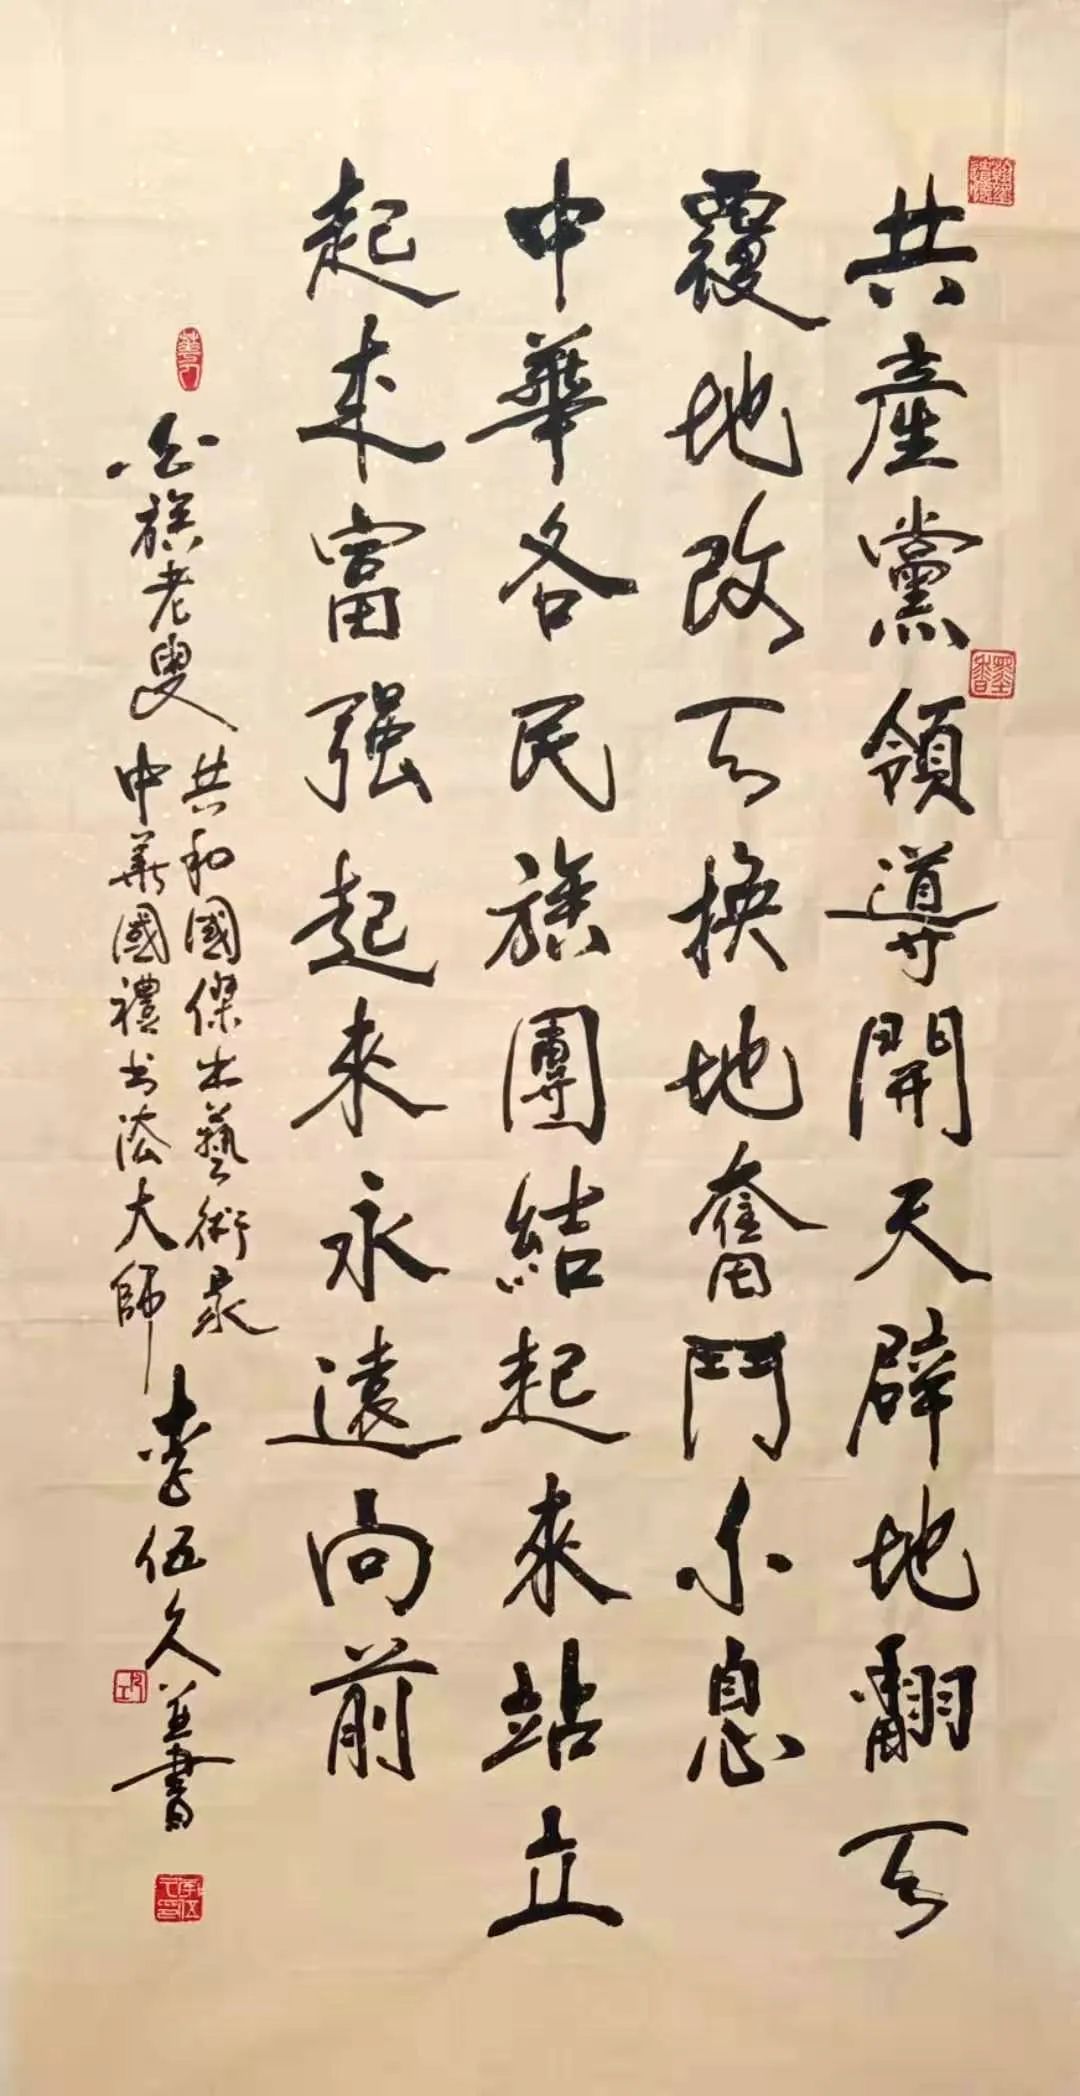 共產黨領導開天辟地翻天
覆地改天換地奮鬥不息
中華各民族團結起來站立
起来富强起來永遠向前
白族老叟
共和國傑出藝術家
中華國禮书法大師
李伍久並書